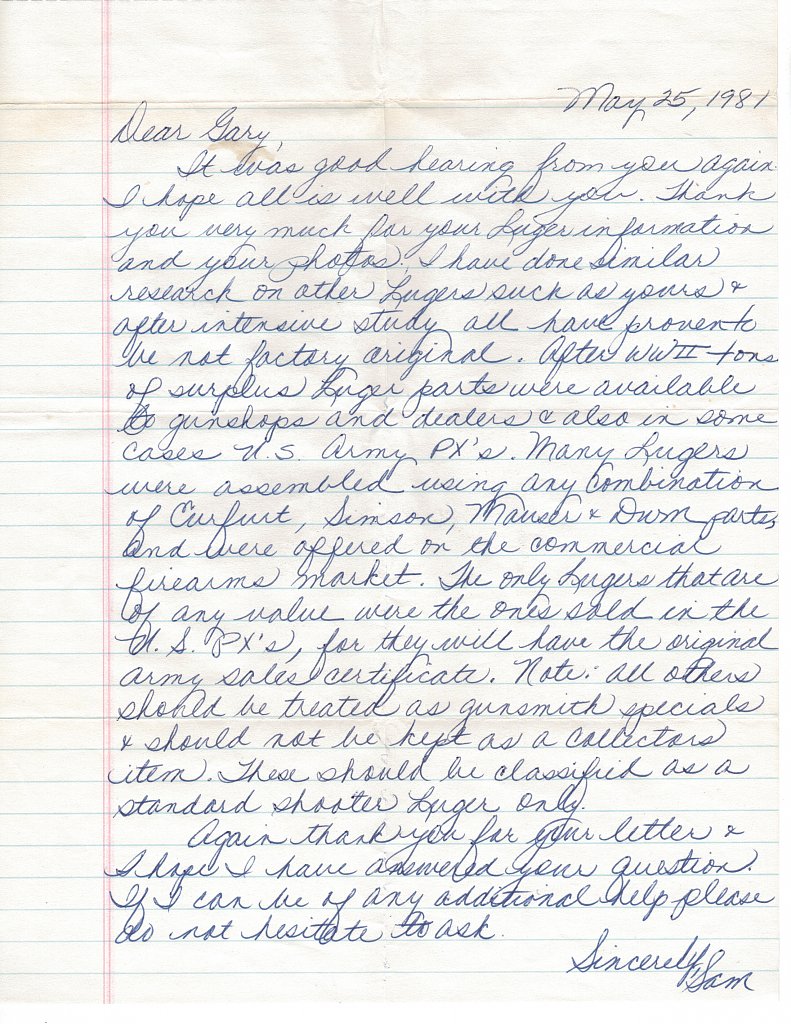 May 25, 1981
Dear Gary,
It was good hearing from you again.
I hope all is well with you. Thank
you very much for your Luger information
and your photos. I have done similar
research on other Lugers such as yours &
after intensive study all have proven to
be not factory original. After WWII tons
of surplus Luger parts were available
to gunshops and dealers & also in some
cases U.S. Army PX's. Many Lugers
were assembled using any combination
of Eurfurt, Simson, Mauser & DWM parts,
and were offered on the commercial
firearms market. The only Lugers that are
of any value were the ones sold in the
U.S. PX's, for they will have the original
army sales certificate. Note: all others
should be treated as gunsmith specials
& should not be kept as a collectors
item. These should be classified as a
standard shooter Luger only.
Again thank you for your letter &
I hope I have answered your question.
If I can be of any additional help please
do not hesitate to ask.
Sincerely,
Sam